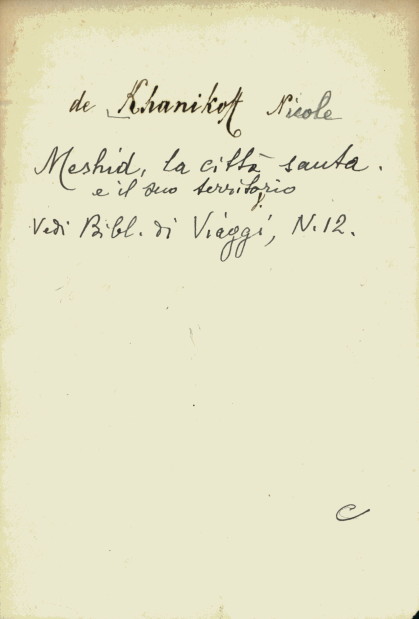 de Khanikoff Nicole
Meshid, la città santa.
e il suo territorio
Vedi Bibl. di Viaggi, N. 12.
C